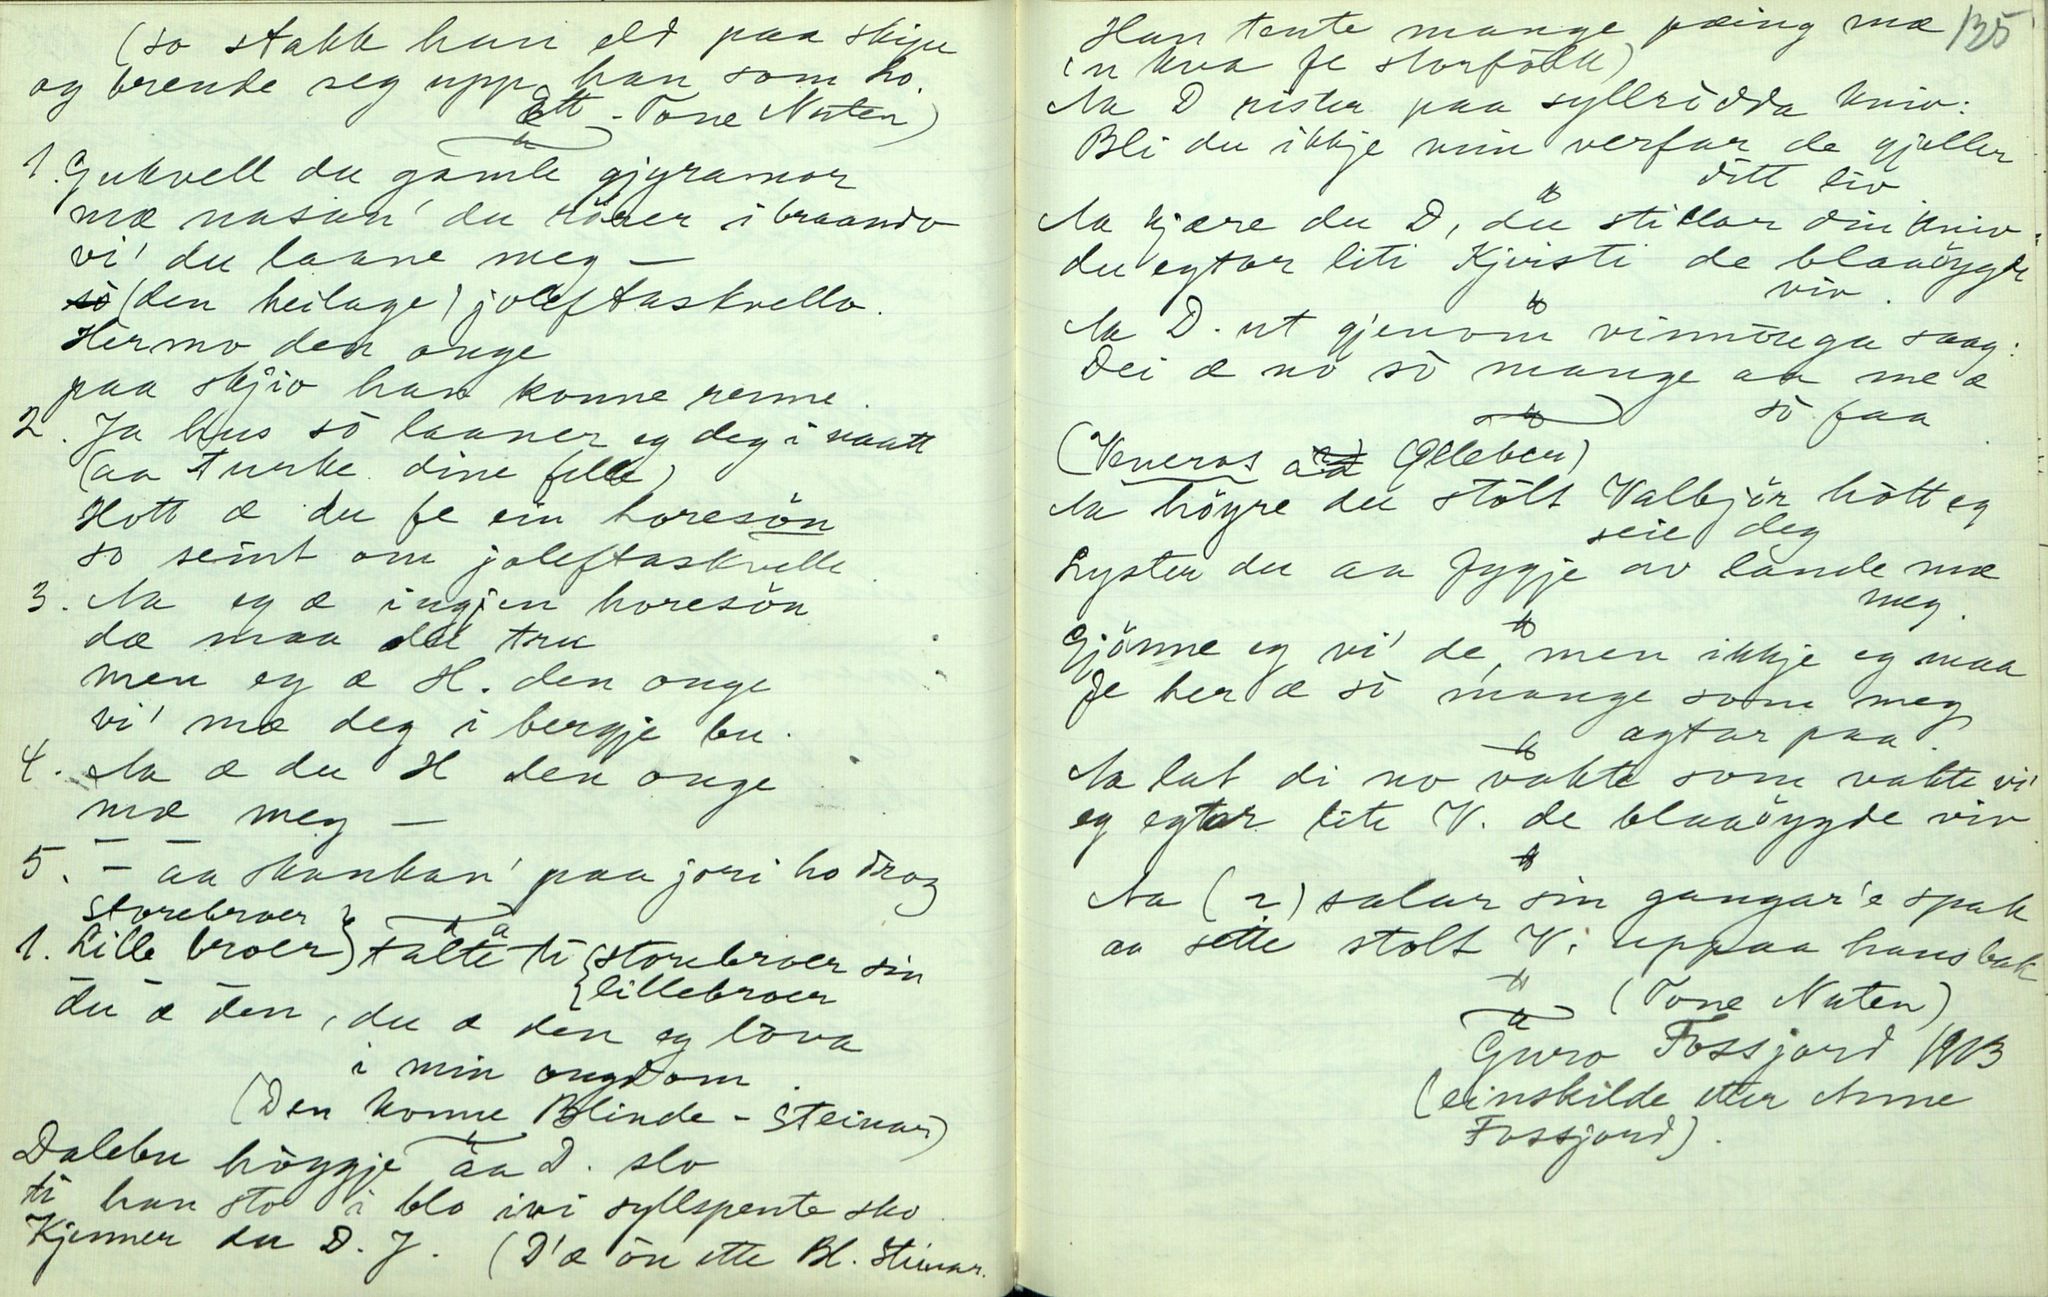 (so stakk han eld paa skipe
og brende seg upp, han som ho.
Ett - Tone Nuten)
1. Gukvell du gamle gjyramor
mæ nasan' du rører i braando
vi' du laane meg —
(den heilage) joleftaskvello.
Hermo den onge
paa skjio han konne renne.
2. Ja hus so laaner eg deg i naatt
(aa turke dine fille)
Hott æ du fe ein horesön
so seint om joleftaskvelle
3. Aa eg æ ingjen horesön
dæ maa du tru
men eg æ H. den onge
vi' mæ deg i bergje bu.
4. Aa æ du H den onge
mæ meg —
5. — aa skankan' paa jori ho drog
Storebroer
1. Lille broer} talte ti {storebroer sin
{lillebroer
du æ den, du æ den eg lova
i min ongdom.
(Den konne Blinde-Steinar)
Dalebu höggje aa D. slo
ti han sto i blo ivi syllspente sko.
Kjenner du D. J. (D'æ ön ette Bl. Steinar.
135
Han tente mange pæing mæ
in kva fe storfolk)
Aa D rister paa syllridda kniv:
Bli du ikkje min verfar de gjeller
ditt liv
Aa kjære du D, du stillar din kniv
du egtar liti Kjersti de blaaöygde
viv.
Aa D. ut gjenom vinnöuga saag:
Dei æ no so mange aa me æ
so faa
(Veneros Ollebeu)
Aa höyre du stolt Valbjör hott eg
seie deg
Lyster du aa fygje av lande mæ
meg.
Gjönne eg vi' de, men ikkje eg maa
fe her æ so mange som meg
agtar paa.
Aa lat di no vakte som vakte vi'
eg egtar lite V. de blaaöygde viv
Aa (2) salar sin gangar'e spak
aa sette stolt V. uppaa hans bak
(Tone Nuten)
Guro Fossjord 1913
(einskilde etter Anne
Fossjord).